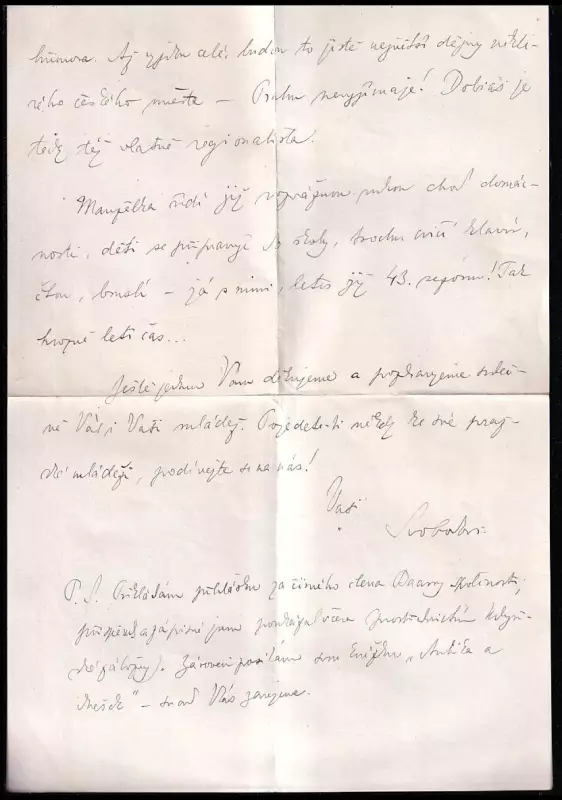 humoru. Až vyjdou celé, budou to jistě největší dějiny někte-
rého českého města — Prahu nevyjímaje! Dobiáš je
tedy též vlastně regionalista.
Manželka řídí již chod domác-
nosti, děti se připravují do školy, trochu cvičí klavír,
čtou, bruslí — já s nimi, letos již 43. sezónu! Tak
hrozně letí čas...
Ještě jednou Vám děkujeme a pozdravujeme srdeč-
ně Vás i Vaši mládež. Pojedete-li někdy ke své praž-
ské mládeži, podívejte se na nás!
Vaši
Svobodovi.
P.S. Přikládám přihlášku za činného člena společnosti,
příspěvek a zápisné jsem poukázal včera prostřednictvím
záložny). Zároveň posílám svou knížku „Antika a
dnešek" — snad Vás zaujme.